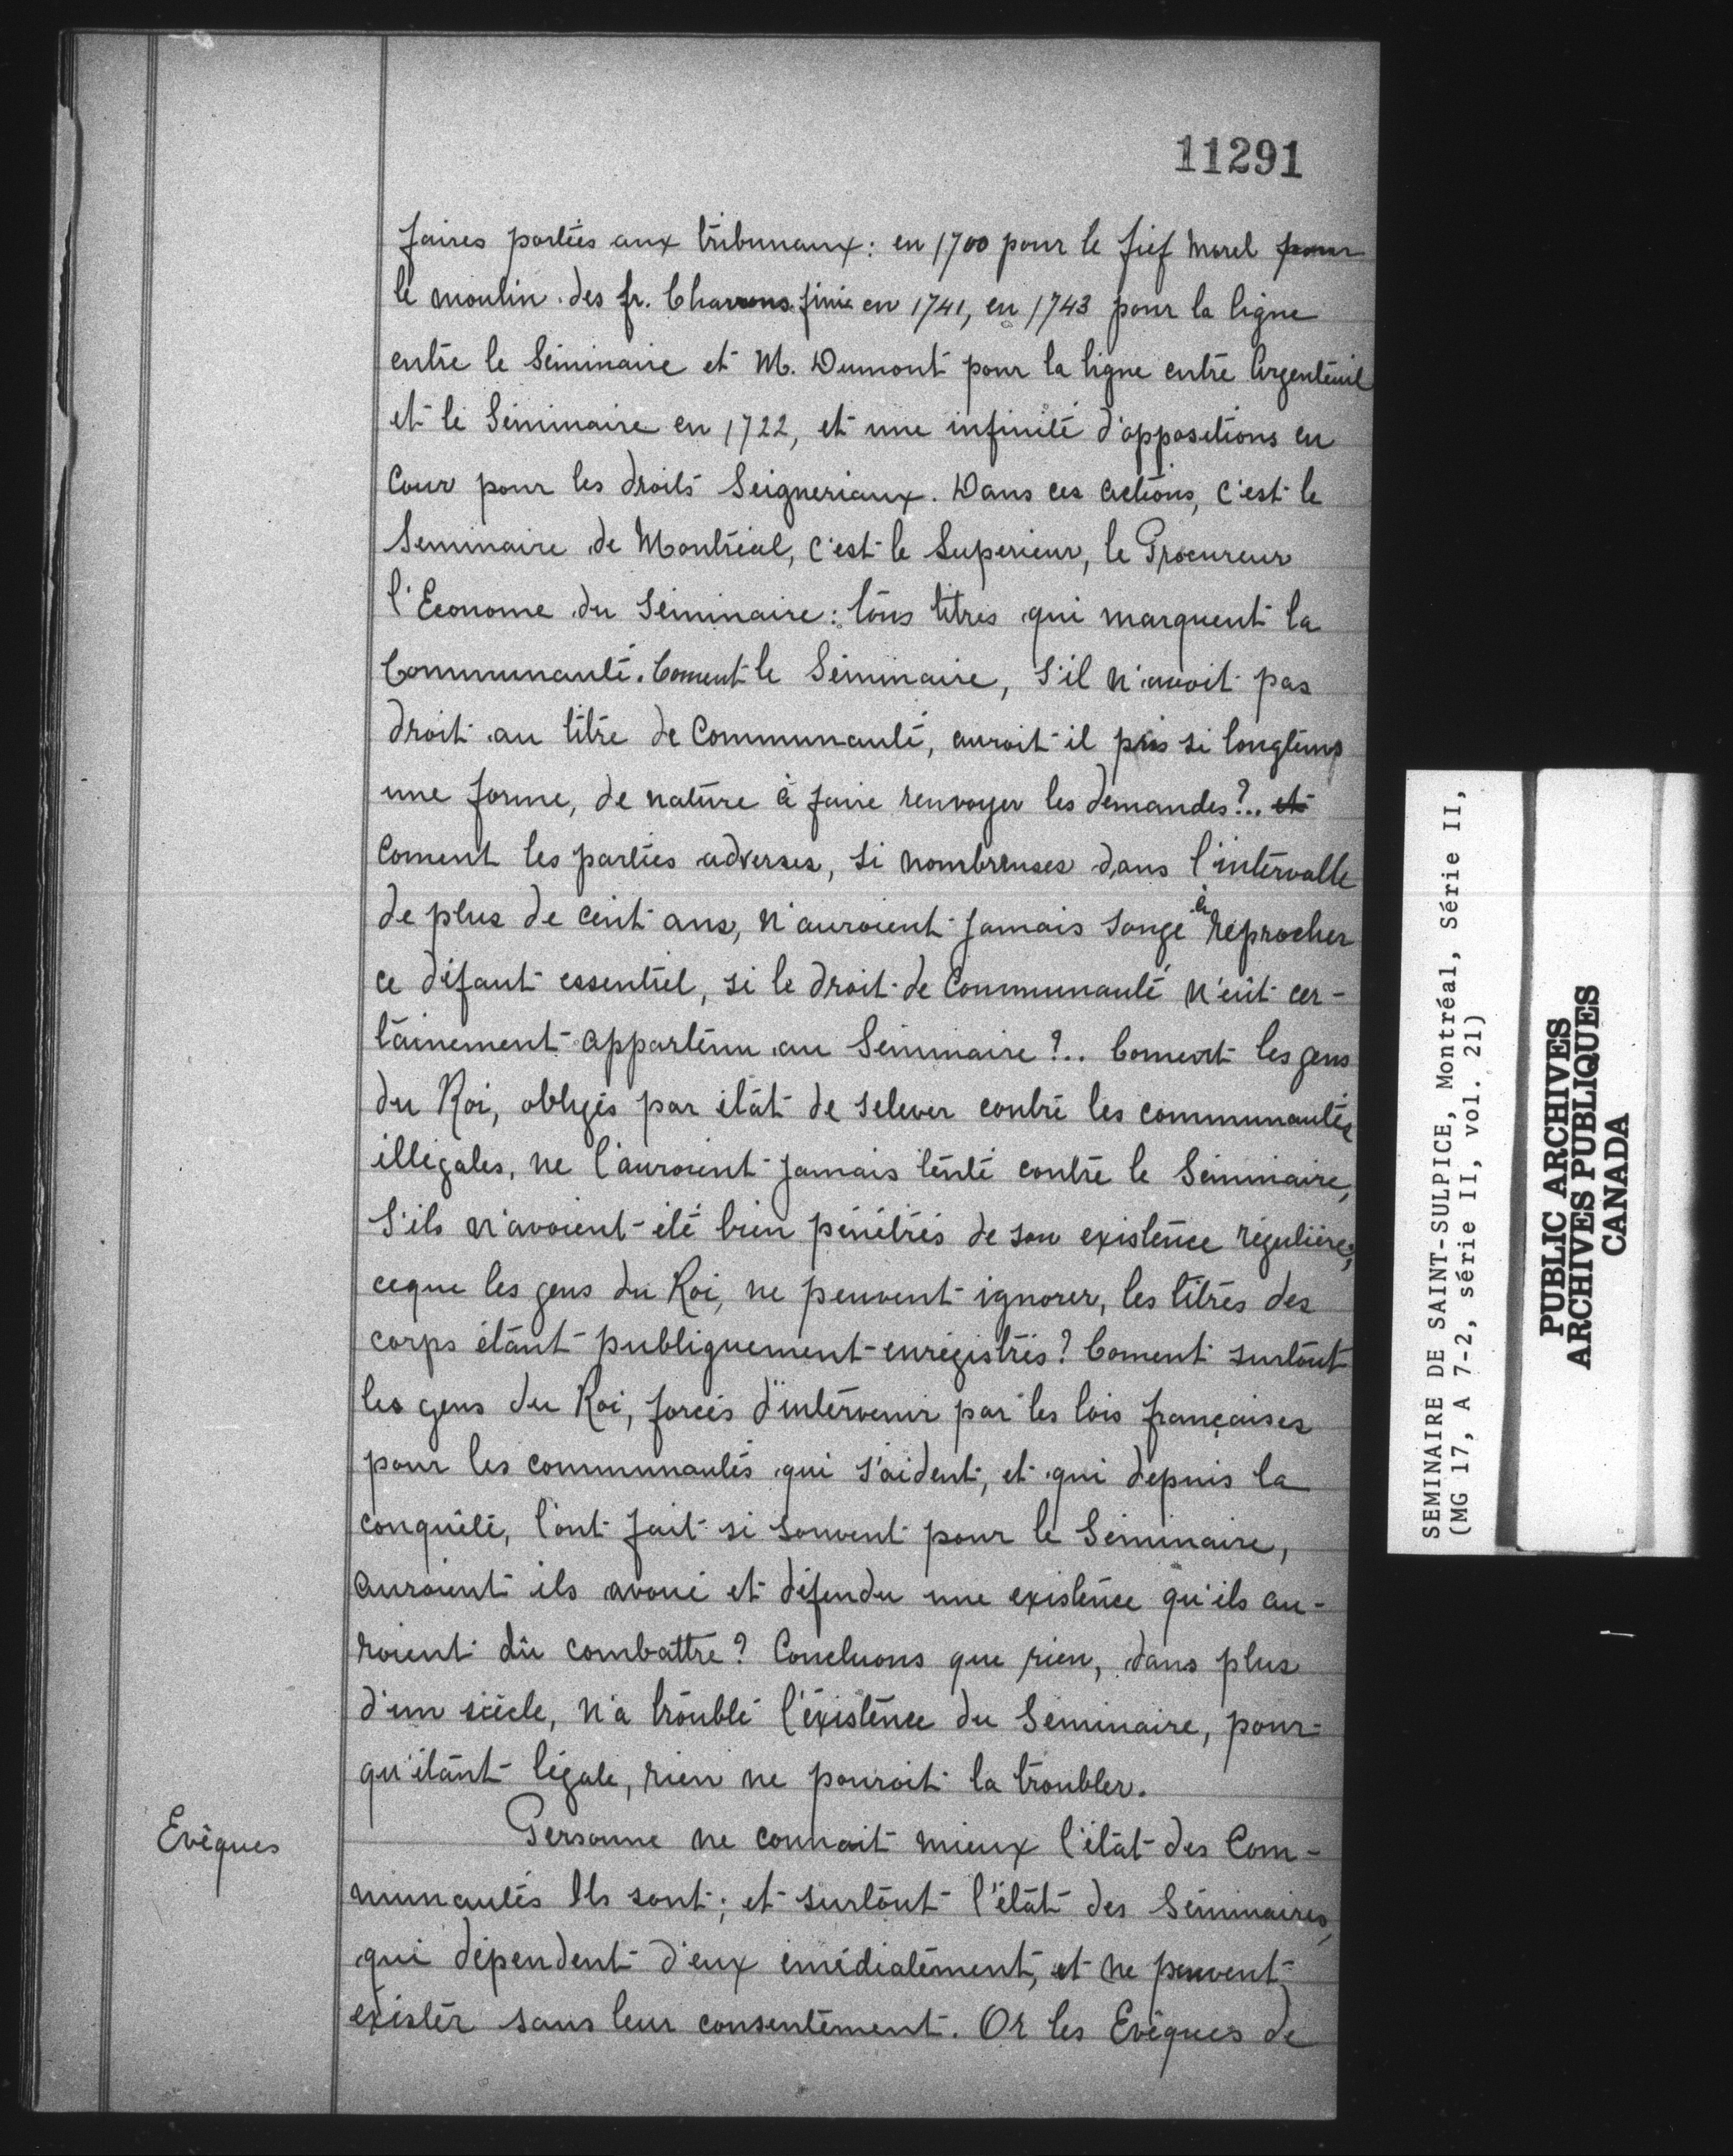 11291
faires portées aux tribunaux: en 1700 pour le fief Morel pour
le moulin des fr. Charrons finie en 1741, en 1743 pour la ligne
entre le Séminaire et M. Dumont pour la ligne entre Argenteuil
et le Séminaire en 1722, et une infinité d'oppositions en
Cour pour les droits Seigneriaux. Dans ces actions, c'est le
Seminaire de Montréal, c'est le Superieur, le Procureur
l'Econome du Séminaire: tous titres qui marquent la
Communauté. Coment le Séminaire, s'il n'avoit pas
droit au titre de Communauté, auroit-il pris si longtems
une forme, de nature à faire renvoyer les demandes?.. et
Coment les parties adverses, si nombreuses dans l'intervalle
de plus de cent ans, n'auroient jamais songé à reprocher
ce défaut essentiel, si le droit de Communauté n'eût cer-
tainement appartenu au Séminaire?.. Coment les gens
du Roi, obligés par état de selever contre les communautés
illégales, ne l'auroient jamais tenté contre le Séminaire,
s'ils n'avoient été bien pénétrés de son existence régulière;
ceque les gens du Roi, ne peuvent ignorer, les titres des
corps étant publiquement enregistrés? Coment surtout
les gens du Roi, forcés d'intervenir par les lois françaises
pour les communautés qui s'aident, et qui depuis la
conquête, l'ont fait si souvent pour le Séminaire,
auroient ils avoué et défendu une existence qu'ils au-
roient dû combattre? Concluons que rien, dans plus
d'un siècle, n'a troublé l'éxistence du Séminaire, pour-
qu'étant légale, rien ne pouroit la troubler.
Evêques
Personne ne connait mieux l'état des Com-
munautés Ils sont; et surtout l'état des Séminaires,
qui dépendent d'eux imédiatement, et ne peuvent
éxister sans leur consentement. Or les Evêques de
SEMINAIRE DE SAINT-SULPICE, Montréal, Série II,
(MG 17, A 7-2, série II, vol. 21)
PUBLIC ARCHIVES
ARCHIVES PUBLIQUES
CANADA